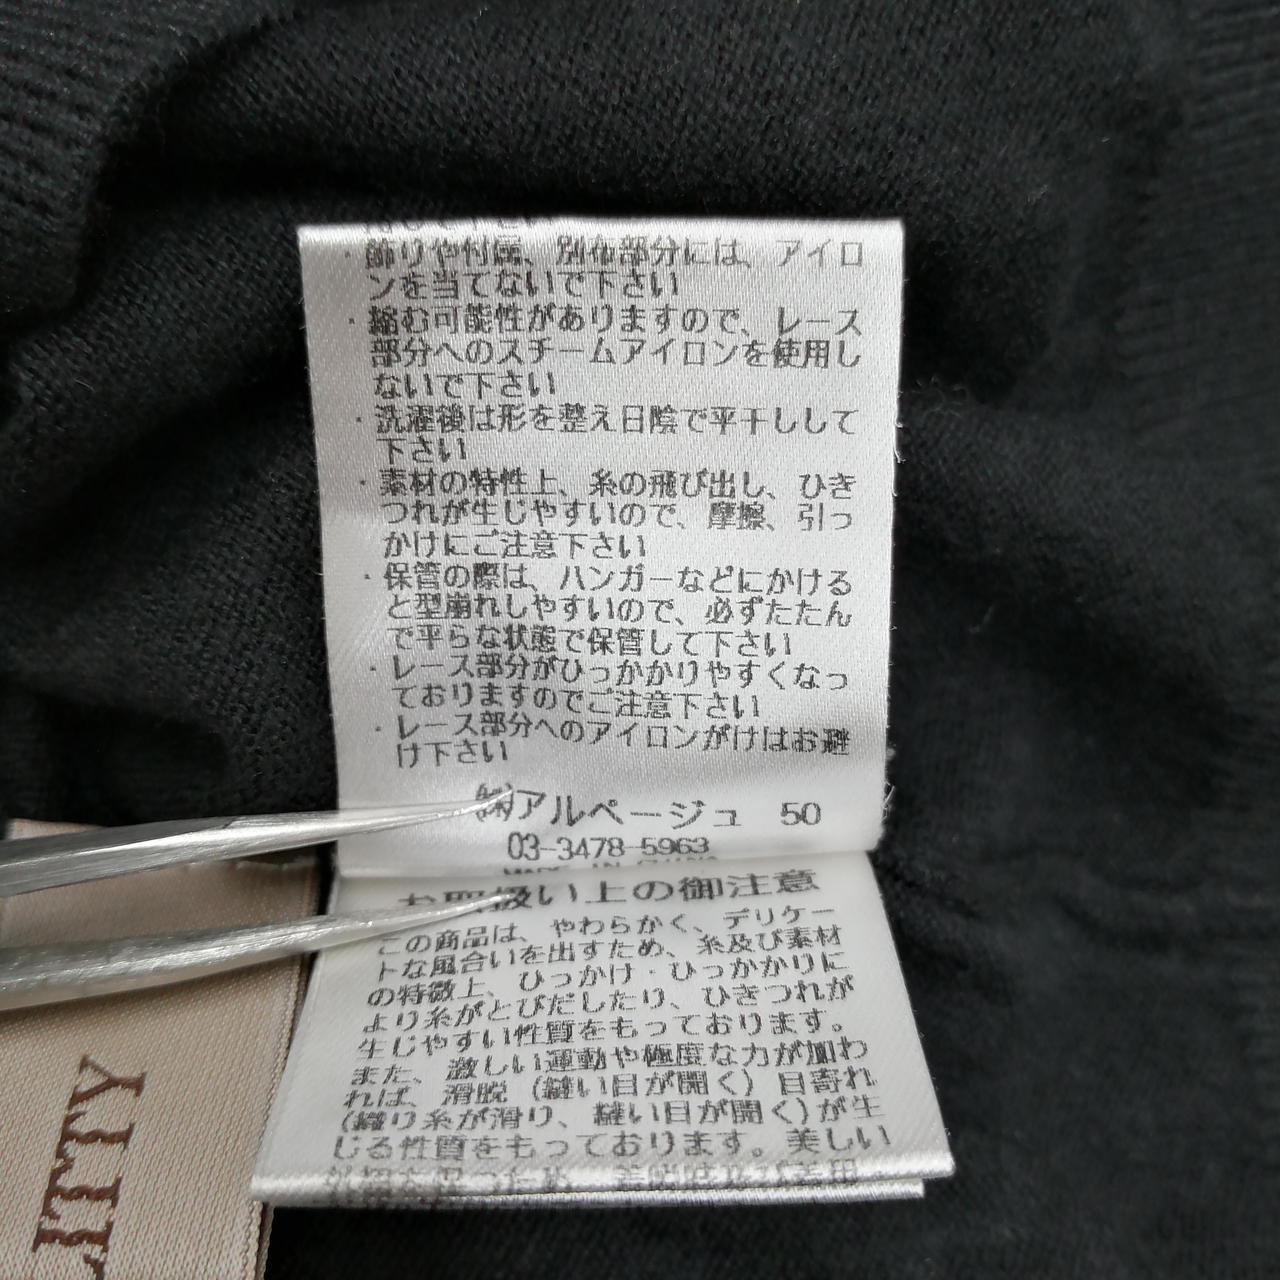 ・飾りや付属、別布部分には、アイロ
ンを当てないで下さい
・縮む可能性がありますので、レース
部分へのスチームアイロンを使用し
ないで下さい
・洗濯後は形を整え日陰で平干しして
下さい
・素材の特性上、糸の飛び出し、ひき
つれが生じやすいので、摩擦、引っ
かけにご注意下さい
・保管の際は、ハンガーなどにかける
と型崩れしやすいので、必ずたたん
で平らな状態で保管して下さい
・レース部分がひっかかりやすくなっ
ておりますのでご注意下さい
・レース部分へのアイロンがけはお避
け下さい
㈱アルページュ 50
03-3478-5963
MADE IN CHINA
お取扱い上の御注意
この商品は、やわらかく、デリケー
トな風合いを出すため、糸及び素材
の特徴上、ひっかけ・ひっかかりに
より糸がとびだしたり、ひきつれが
生じやすい性質をもっております。
また、激しい運動や極度な力が加わ
れば、滑脱（縫い目が開く）目寄れ
(織り糸が滑り、縫い目が開く)が生
じる性質をもっております。美しい
ITY